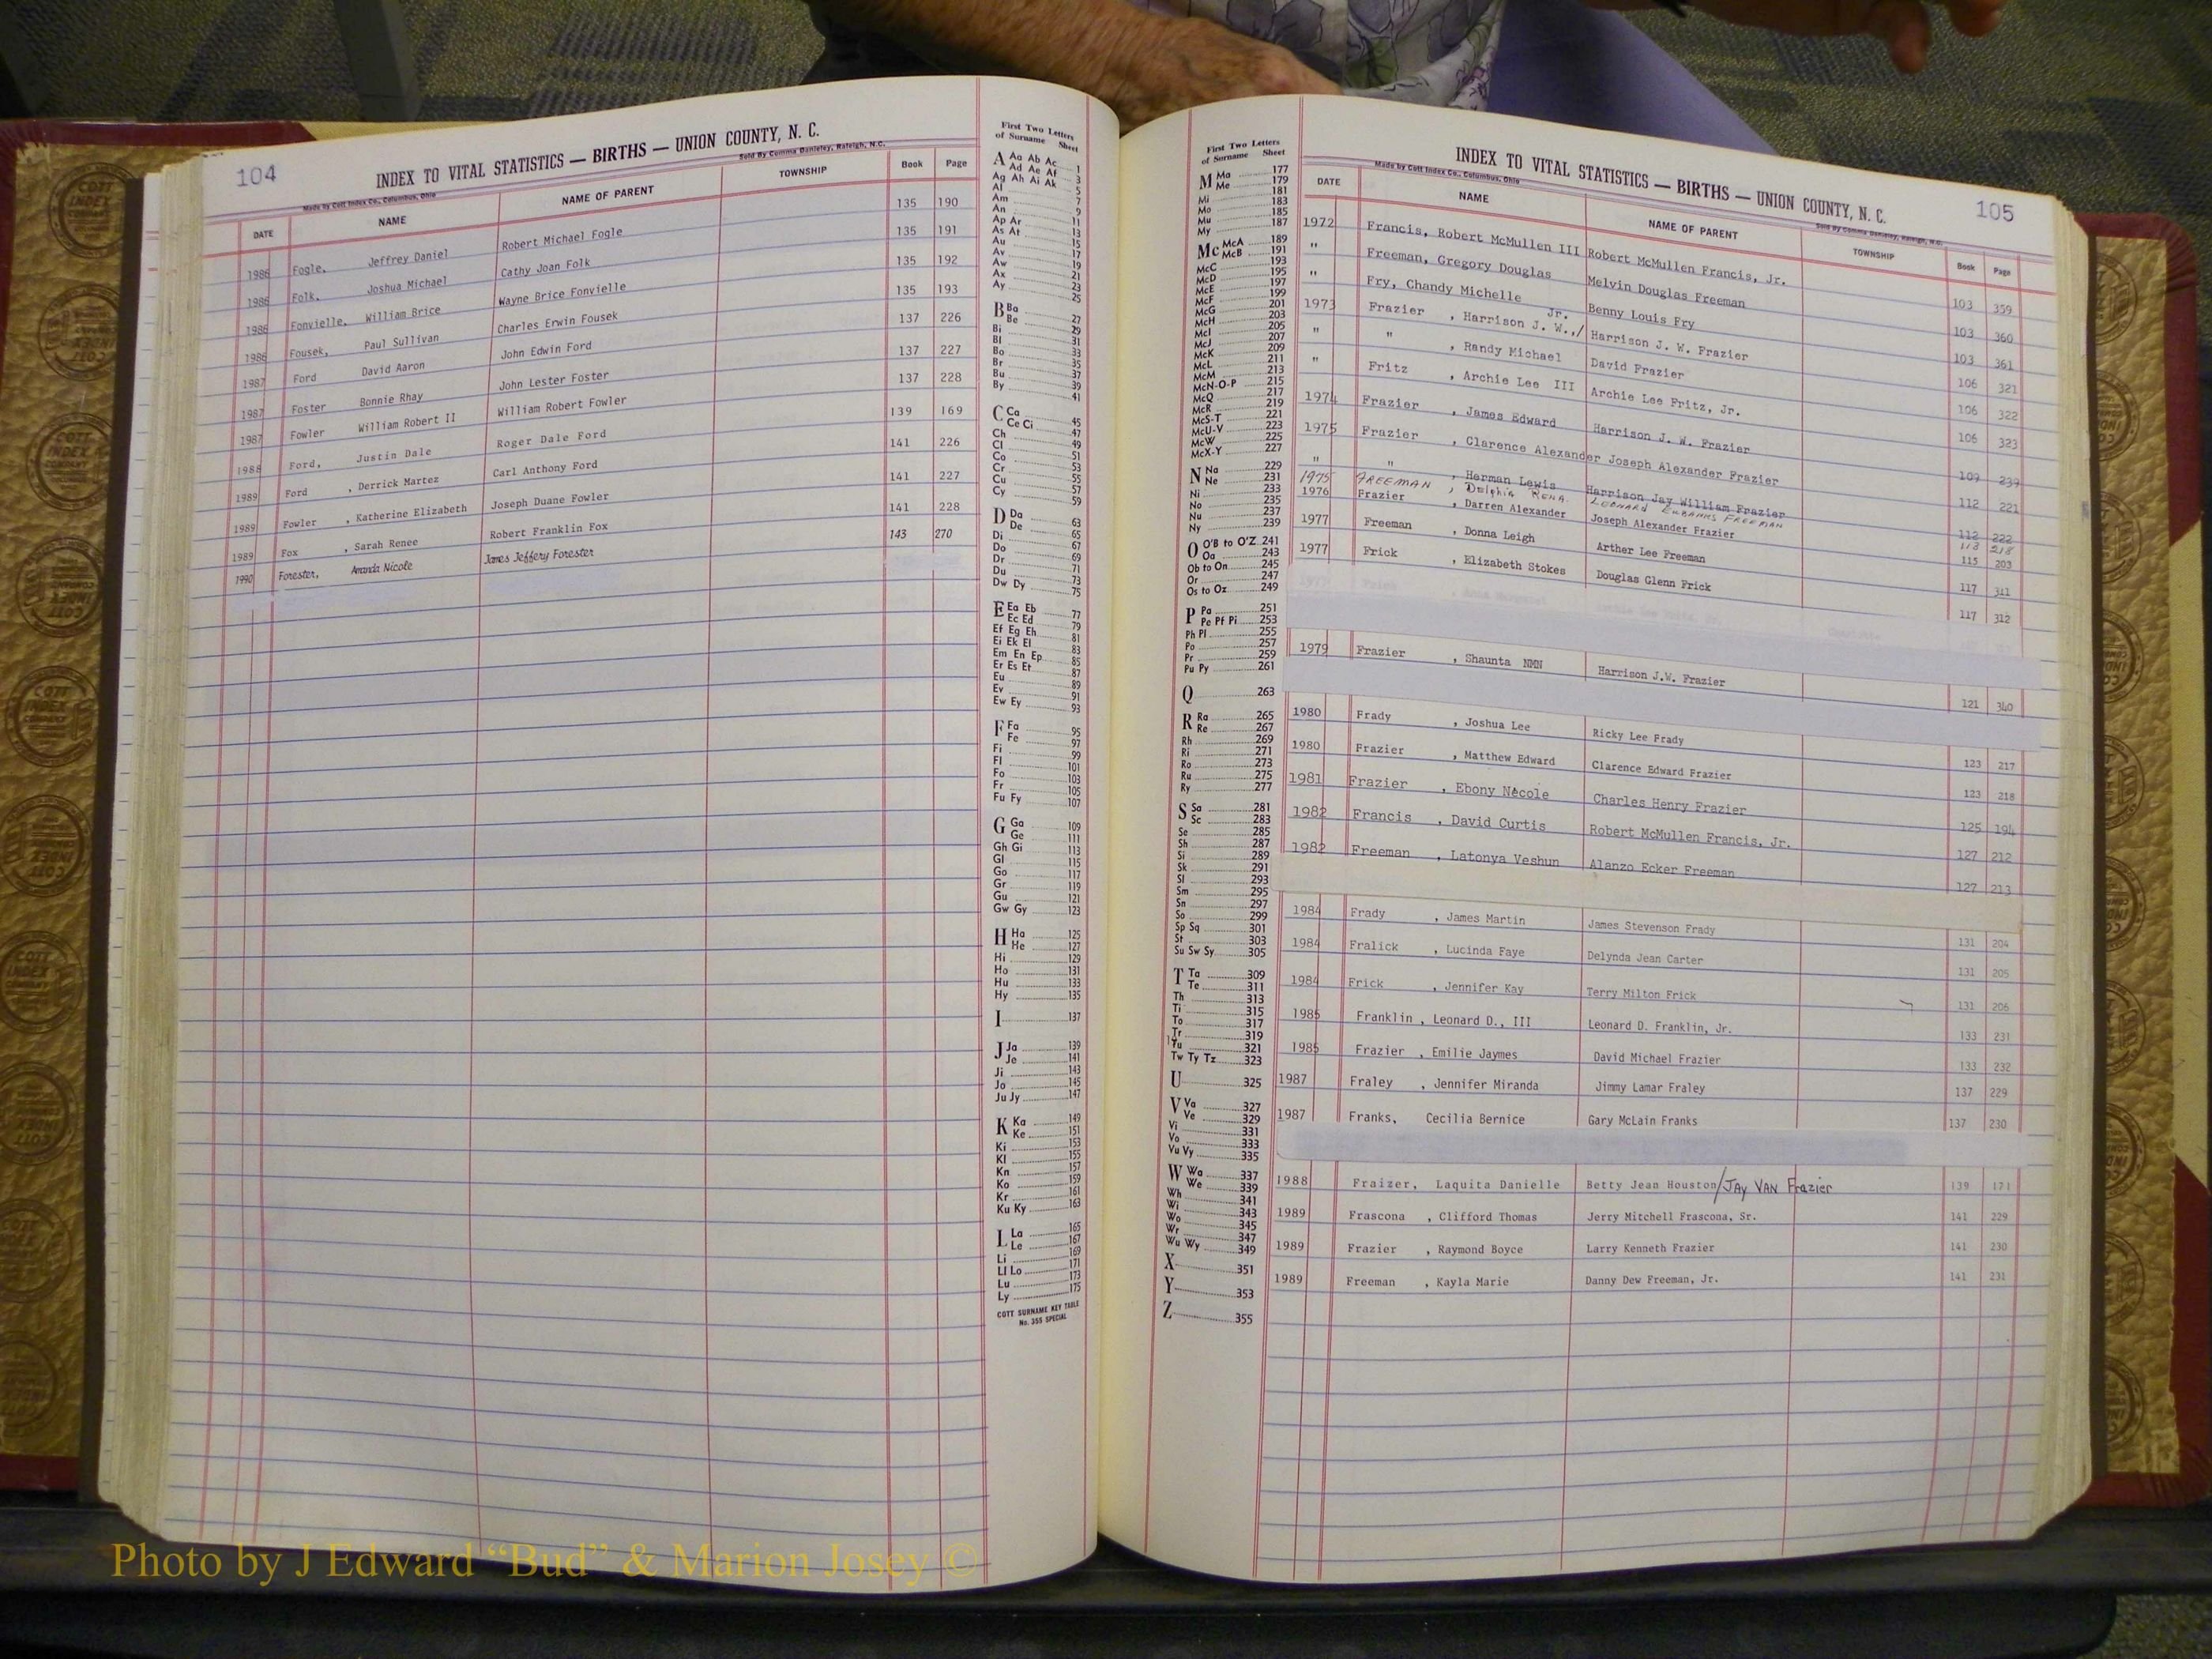 104
INDEX TO VITAL STATISTICS — BIRTHS — UNION COUNTY, N. C.
Made by Cott Index Co., Columbus, Ohio Sold By Comma Danieley, Raleigh, N.C.
DATE NAME NAME OF PARENT TOWNSHIP Book Page
1986 Fogle, Jeffrey Daniel Robert Michael Fogle 135 190
1986 Folk, Joshua Michael Cathy Joan Folk 135 191
1986 Fonvielle, William Brice Wayne Brice Fonvielle 135 192
1986 Fousek, Paul Sullivan Charles Erwin Fousek 135 193
1987 Ford David Aaron John Edwin Ford 137 226
1987 Foster Bonnie Rhay John Lester Foster 137 227
1987 Fowler William Robert II William Robert Fowler 137 228
1988 Ford, Justin Dale Roger Dale Ford 139 169
1989 Ford , Derrick Martez Carl Anthony Ford 141 226
1989 Fowler , Katherine Elizabeth Joseph Duane Fowler 141 227
1989 Fox , Sarah Renee Robert Franklin Fox 141 228
1990 Forester, Amanda Nicole James Jeffery Forester 143 270
First Two Letters
of Surname Sheet
A Aa Ab Ac 1
Ad Ae Af 3
Ag Ah Ai Ak 5
Al 7
Am 9
An 11
Ap Ar 13
As At 15
Au 17
Av 19
Aw 21
Ax 23
Ay 25
B Ba 27
Be 29
Bi 31
Bl 33
Bo 35
Br 37
Bu 39
By 41
C Ca 45
Ce Ci 47
Ch 49
Cl 51
Co 53
Cr 55
Cu 57
Cy 59
D Da 63
De 65
Di 67
Do 69
Dr 71
Du 73
Dw Dy 75
E Ea Eb 77
Ec Ed 79
Ef Eg Eh 81
Ei Ek El 83
Em En Ep 85
Er Es Et 87
Eu 89
Ev 91
Ew Ey 93
F Fa 95
Fe 97
Fi 99
Fl 101
Fo 103
Fr 105
Fu Fy 107
G Ga 109
Ge 111
Gh Gi 113
Gl 115
Go 117
Gr 119
Gu 121
Gw Gy 123
H Ha 125
He 127
Hi 129
Ho 131
Hu 133
Hy 135
I 137
J Ja 139
Je 141
Ji 143
Jo 145
Ju Jy 147
K Ka 149
Ke 151
Ki 153
Kl 155
Kn 157
Ko 159
Kr 161
Ku Ky 163
L La 165
Le 167
Li 169
Ll Lo 171
Lu 173
Ly 175
COTT SURNAME KEY TABLE
No. 355 SPECIAL
First Two Letters
of Surname Sheet
M Ma 177
Me 179
Mi 181
Mo 183
Mu 185
My 187
Mc McA 189
McB 191
McC 193
McD 195
McE 197
McF 199
McG 201
McH 203
McI 205
McJ 207
McK 209
McL 211
McM 213
McN-O-P 215
McQ 217
McR 219
McS-T 221
McU-V 223
McW 225
McX-Y 227
N Na 229
Ne 231
Ni 233
No 235
Nu 237
Ny 239
O O'B to O'Z 241
Oa 243
Ob to On 245
Or 247
Os to Oz 249
P Pa 251
Pe Pf Pi 253
Ph Pl 255
Po 257
Pr 259
Pu Py 261
Q 263
R Ra 265
Re 267
Rh 269
Ri 271
Ro 273
Ru 275
Ry 277
S Sa 281
Sc 283
Se 285
Sh 287
Si 289
Sk 291
Sl 293
Sm 295
Sn 297
So 299
Sp Sq 301
St 303
Su Sw Sy 305
T Ta 309
Te 311
Th 313
Ti 315
To 317
Tr 319
Tu 321
Tw Ty Tz 323
U 325
V Va 327
Ve 329
Vi 331
Vo 333
Vu Vy 335
W Wa 337
We 339
Wh 341
Wi 343
Wo 345
Wr 347
Wu Wy 349
X 351
Y 353
Z 355
105
INDEX TO VITAL STATISTICS — BIRTHS — UNION COUNTY, N. C.
Made by Cott Index Co., Columbus, Ohio Sold By Comma Danieley, Raleigh, N.C.
DATE NAME NAME OF PARENT TOWNSHIP Book Page
1972 Francis, Robert McMullen III Robert McMullen Francis, Jr. 103 359
" Freeman, Gregory Douglas Melvin Douglas Freeman 103 360
" Fry, Chandy Michelle Benny Louis Fry 103 361
1973 Frazier , Harrison J. W.,/ Jr. Harrison J. W. Frazier 106 321
" " , Randy Michael David Frazier 106 322
" Fritz , Archie Lee III Archie Lee Fritz, Jr. 106 323
1974 Frazier , James Edward Harrison J. W. Frazier 109 239
1975 Frazier , Clarence Alexander Joseph Alexander Frazier 112 221
" " , Herman Lewis Harrison Jay William Frazier 112 222
1975 FREEMAN , Delphia RENA LEONARD EUBANKS FREEMAN 113 218
1976 Frazier , Darren Alexander Joseph Alexander Frazier 115 203
1977 Freeman , Donna Leigh Arther Lee Freeman 117 311
1977 Frick , Elizabeth Stokes Douglas Glenn Frick 117 312
1979 Frazier , Shaunta NMN Harrison J.W. Frazier 121 340
1980 Frady , Joshua Lee Ricky Lee Frady 123 217
1980 Frazier , Matthew Edward Clarence Edward Frazier 123 218
1981 Frazier , Ebony Necole Charles Henry Frazier 125 194
1982 Francis , David Curtis Robert McMullen Francis, Jr. 127 212
1982 Freeman , Latonya Veshun Alanzo Ecker Freeman 127 213
1984 Frady , James Martin James Stevenson Frady 131 204
1984 Fralick , Lucinda Faye Delynda Jean Carter 131 205
1984 Frick , Jennifer Kay Terry Milton Frick 131 206
1985 Franklin , Leonard D., III Leonard D. Franklin, Jr. 133 231
1985 Frazier , Emilie Jaymes David Michael Frazier 133 232
1987 Fraley , Jennifer Miranda Jimmy Lamar Fraley 137 229
1987 Franks, Cecilia Bernice Gary McLain Franks 137 230
1988 Fraizer, Laquita Danielle Betty Jean Houston/JAY VAN Frazier 139 171
1989 Frascona , Clifford Thomas Jerry Mitchell Frascona, Sr. 141 229
1989 Frazier , Raymond Boyce Larry Kenneth Frazier 141 230
1989 Freeman , Kayla Marie Danny Dew Freeman, Jr. 141 231
Photo by J Edward “Bud” & Marion Josey ©